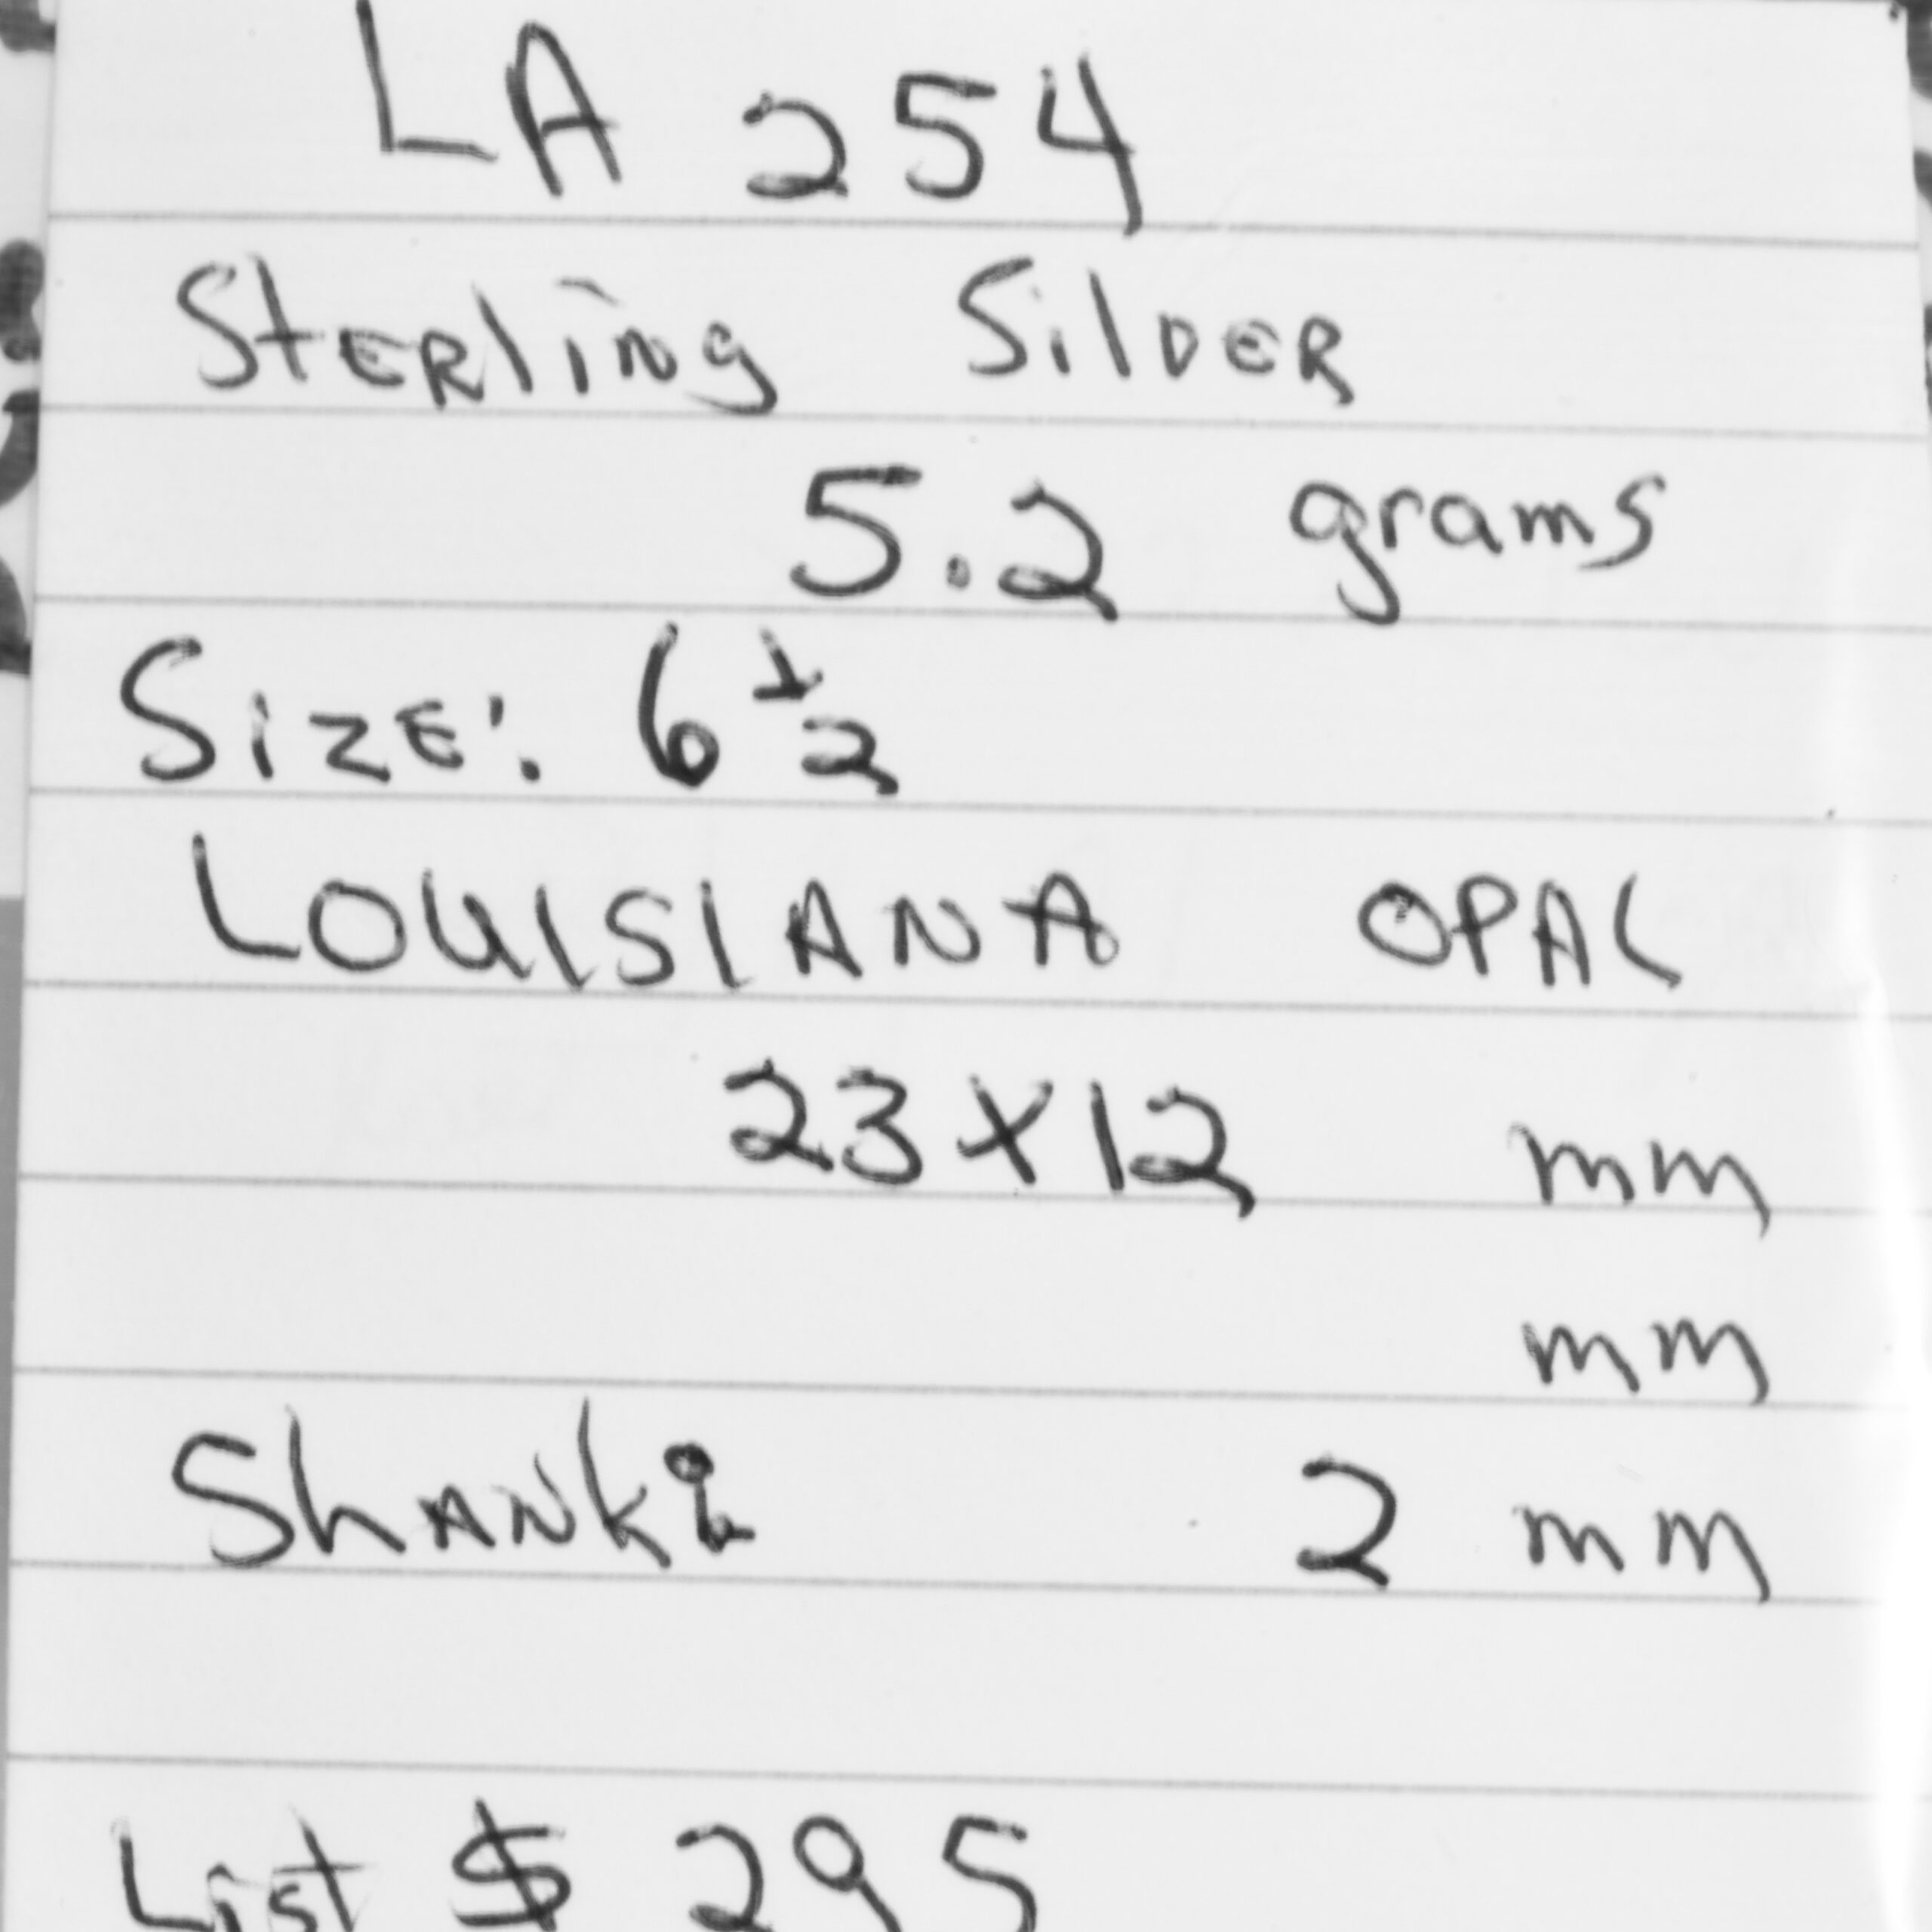 LA 254
Sterling Silver
5.2 grams
Size: 6 1/2
LOUISIANA OPAL
23x12 mm
mm
Shank: 2 mm
List $ 295